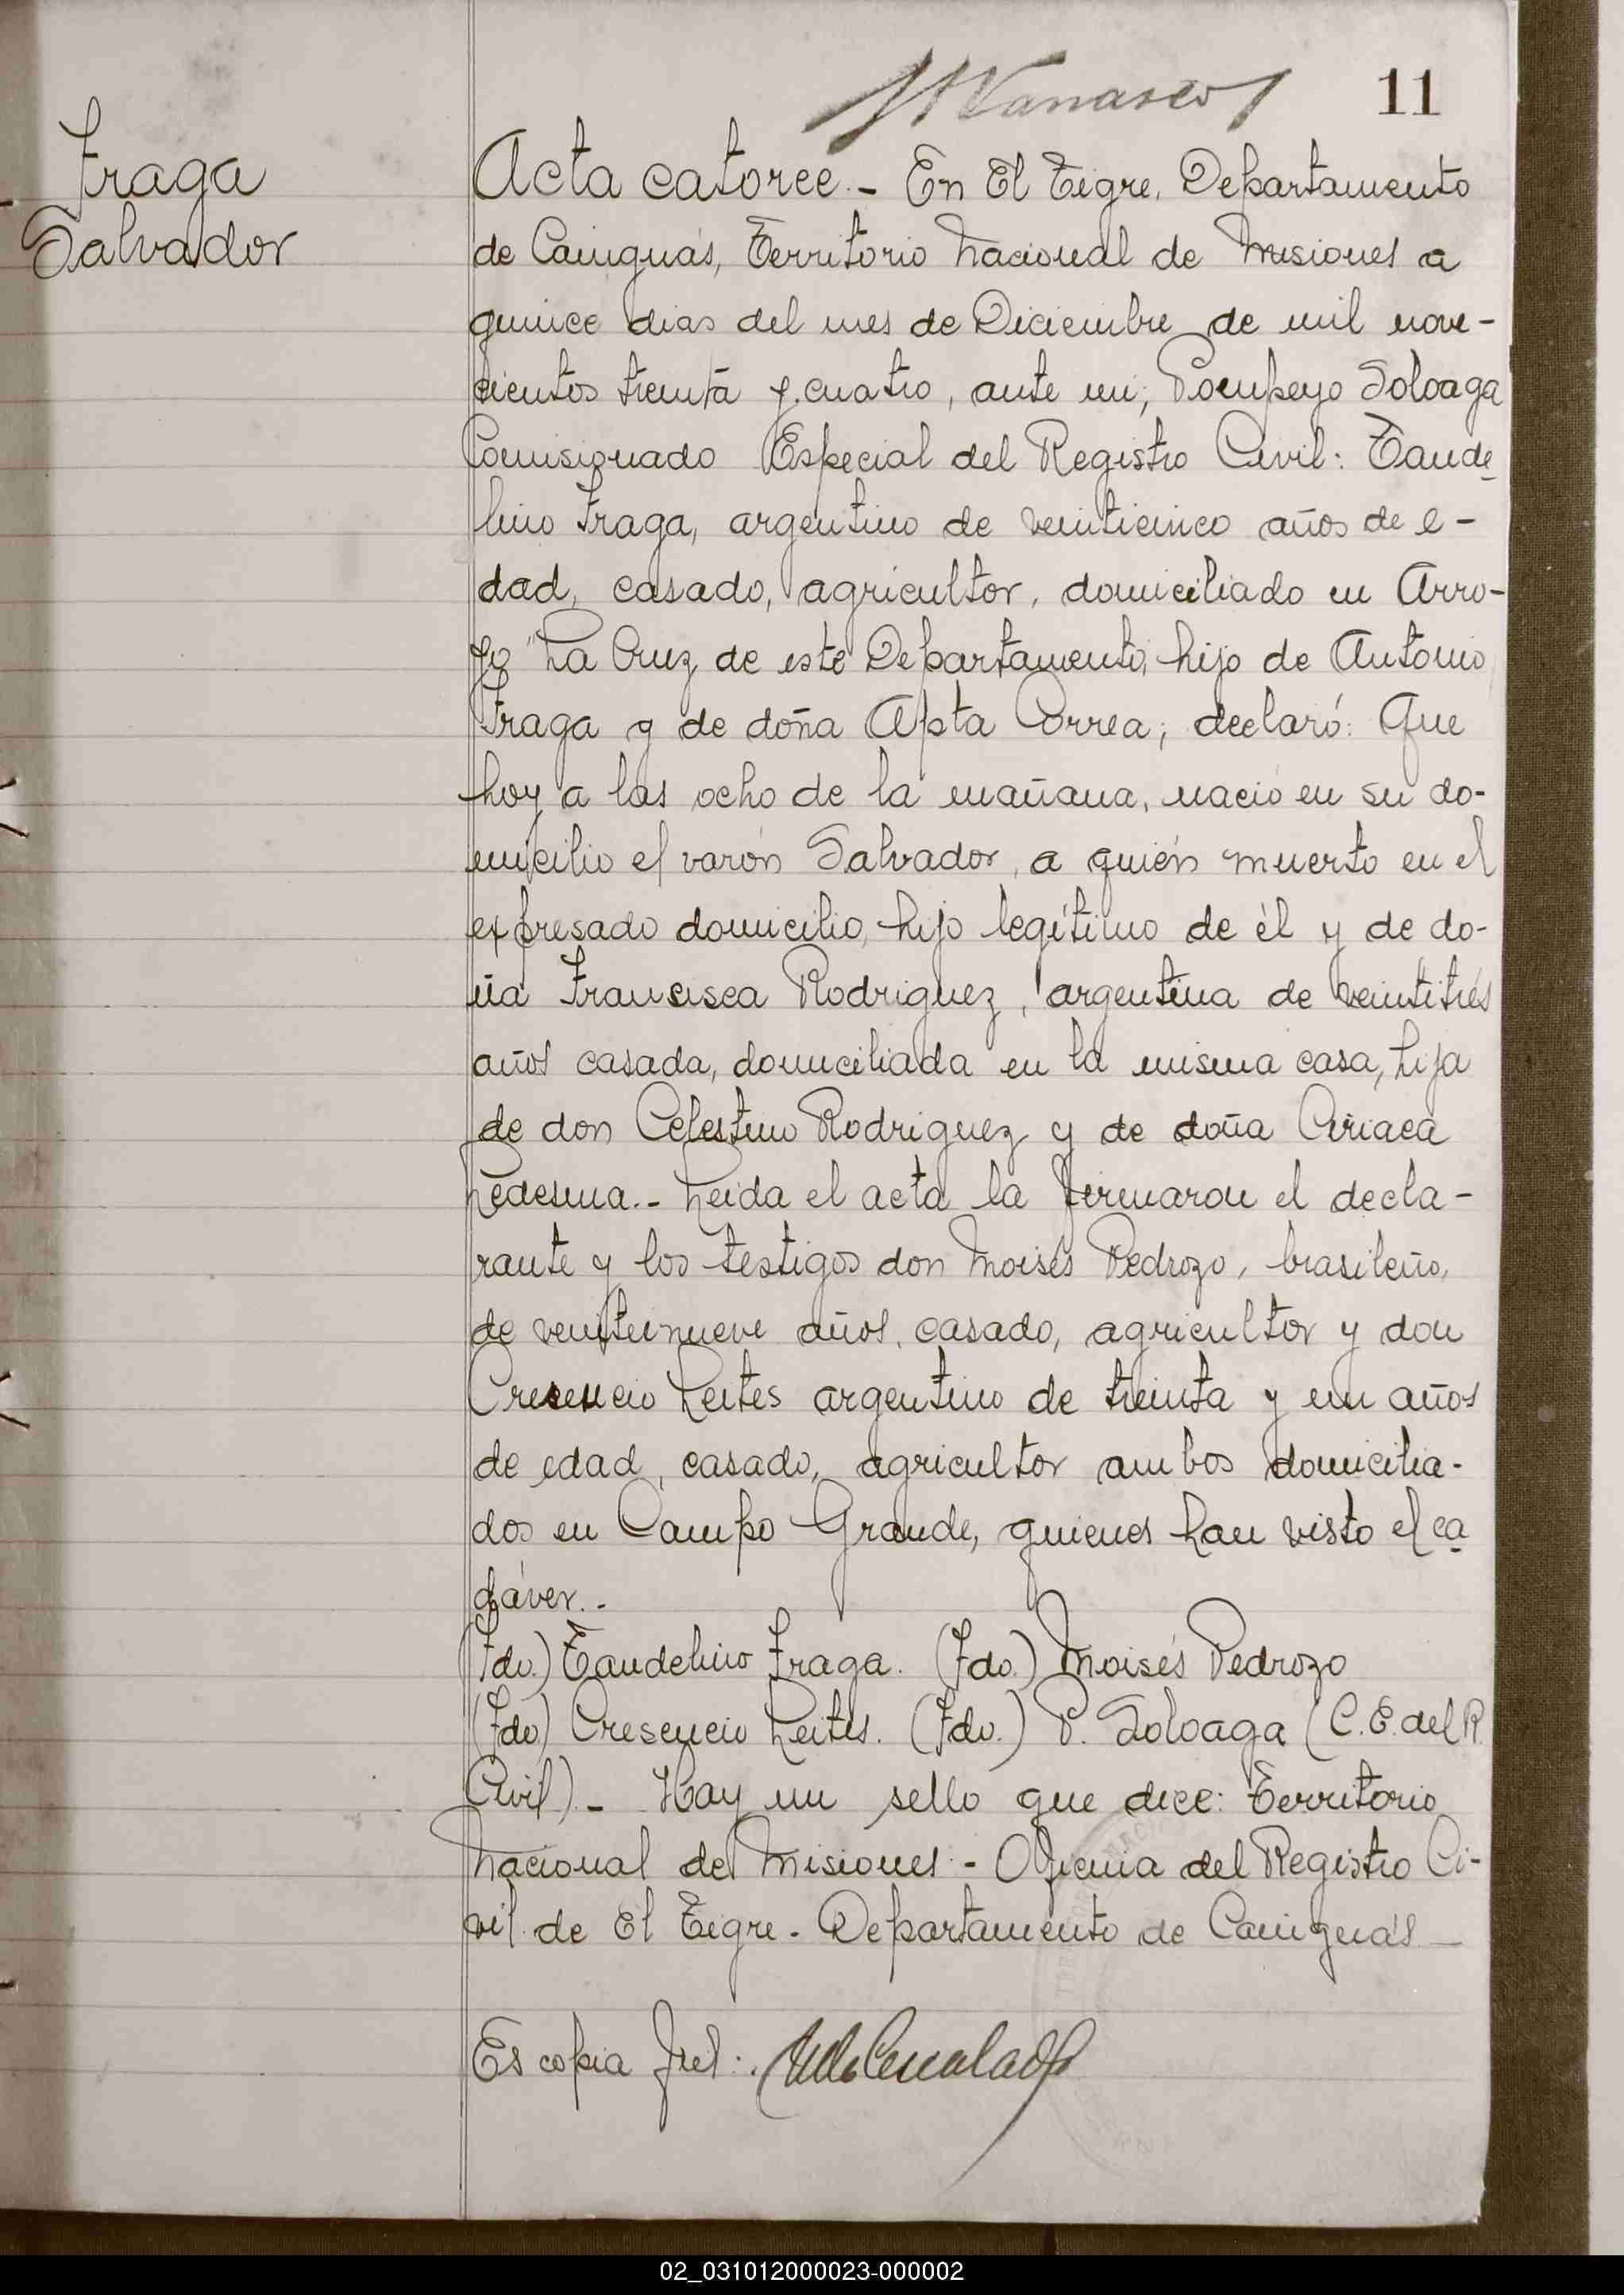 11
Fraga
Salvador
Acta catorce.- En El Tigre, Departamento
de Cainguás, Territorio Nacional de Misiones a
quince dias del mes de Diciembre de mil nove-
cientos treinta y cuatro, ante mi, Pompeyo Soloaga
Comisionado Especial del Registro Civil: Taude
lino Fraga, argentino de veinticinco años de e-
dad, casado, agricultor, domiciliado en Arro-
yo "La Cruz de este Departamento, hijo de Antonio
Fraga y de doña Apta Correa; declaró: Que
hoy a las ocho de la mañana, nació en su do-
micilio el varón Salvador, a quién muerto en el
expresado domicilio, hijo legítimo de él y de do-
ña Fransisca Rodriguez, argentina de veintitrés
años casada, domiciliada en la misma casa, hija
de don Celestino Rodriguez y de doña Ciriaca
Ledesma.- Leida el acta la firmaron el decla-
rante y los testigos don Moisés Pedrozo, brasileño,
de veintinueve años, casado, agricultor y don
Cresencio Leites argentino de treinta y un años
de edad, casado, agricultor ambos domicilia-
dos en Campo Grande, quienes han visto el ca
dáver.-
(Fdo.) Taudelino Fraga. (Fdo.) Moisés Pedrozo
(Fdo) Cresencio Leites. (Fdo.) P. Soloaga (C. E. del R.
Civil).- Hay un sello que dice: Territorio
Nacional de Misiones - Oficina del Registro Ci-
vil de El Tigre - Departamento de Cainguás
Es copia fiel:
02_031012000023-000002